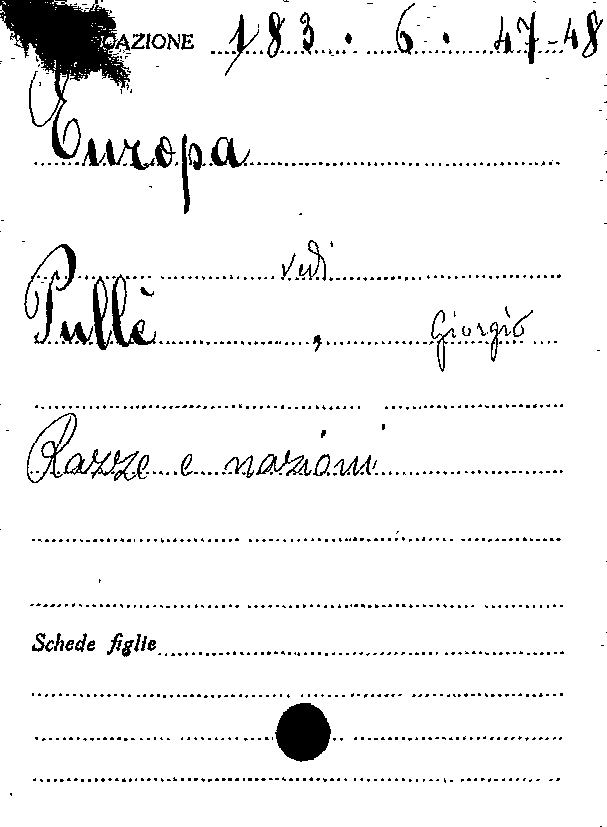 CAZIONE 183. 6. 47-48
Europa
vedi
Pullè, Giorgio
Razze e nazioni
Schede figlie